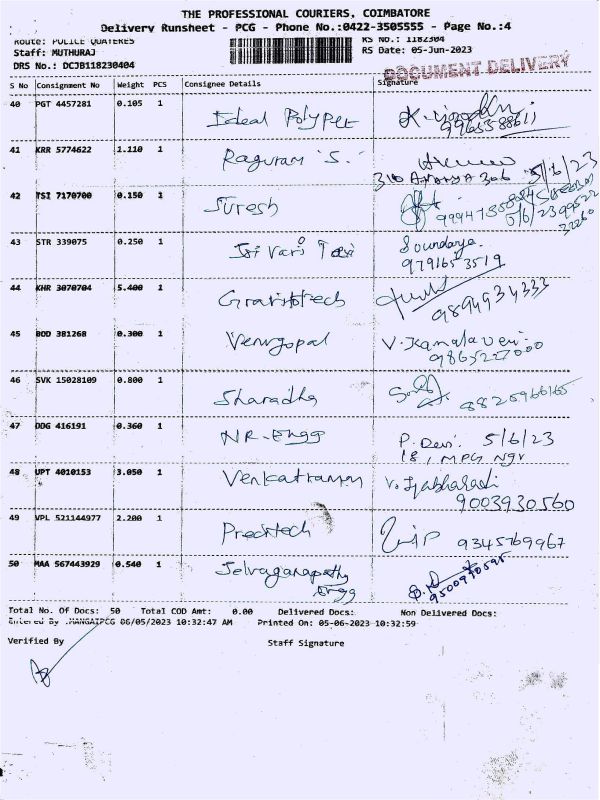 THE PROFESSIONAL COURIERS, COIMBATORE
Delivery Runsheet - PCG - Phone No.:0422-3505555 - Page No.:4
Route: POLICE QUATERES RS No.: 1182304
Staff: MUTHURAJ RS Date: 05-Jun-2023
DRS No.: DCJB118230404
DOCUMENT DELIVERY
S No Consignment No Weight PCS Consignee Details Signature
40 PGT 4457281 0.105 1 Ideal Polypet
41 KRR 5774622 1.110 1 Raguram S. 5/6/23
42 TSI 7170700 0.150 1 Suresh
43 STR 339075 0.250 1 Sri Vari Soundarya.
9791653519
44 KHR 3070704 5.400 1 9894934333
45 BOD 381268 0.300 1 Venugopal V. Kamalaveni
9865227000
46 SVK 15028109 0.800 1 Sharadha 8825966165
47 DDG 416191 0.360 1 NR-Engg P. Devi 5/6/23
18, MPG Ngr
48 UPT 4010153 3.050 1 Venkatraman
9003930560
49 VPL 521144977 2.200 1 Precitech 9345769967
50 MAA 567443929 0.540 1 Selvaganapathy
Engg 9500970595
Total No. Of Docs: 50 Total COD Amt: 0.00 Delivered Docs: Non Delivered Docs:
Entered By .MANGAIPCG 06/05/2023 10:32:47 AM Printed On: 05-06-2023 10:32:59
Verified By Staff Signature